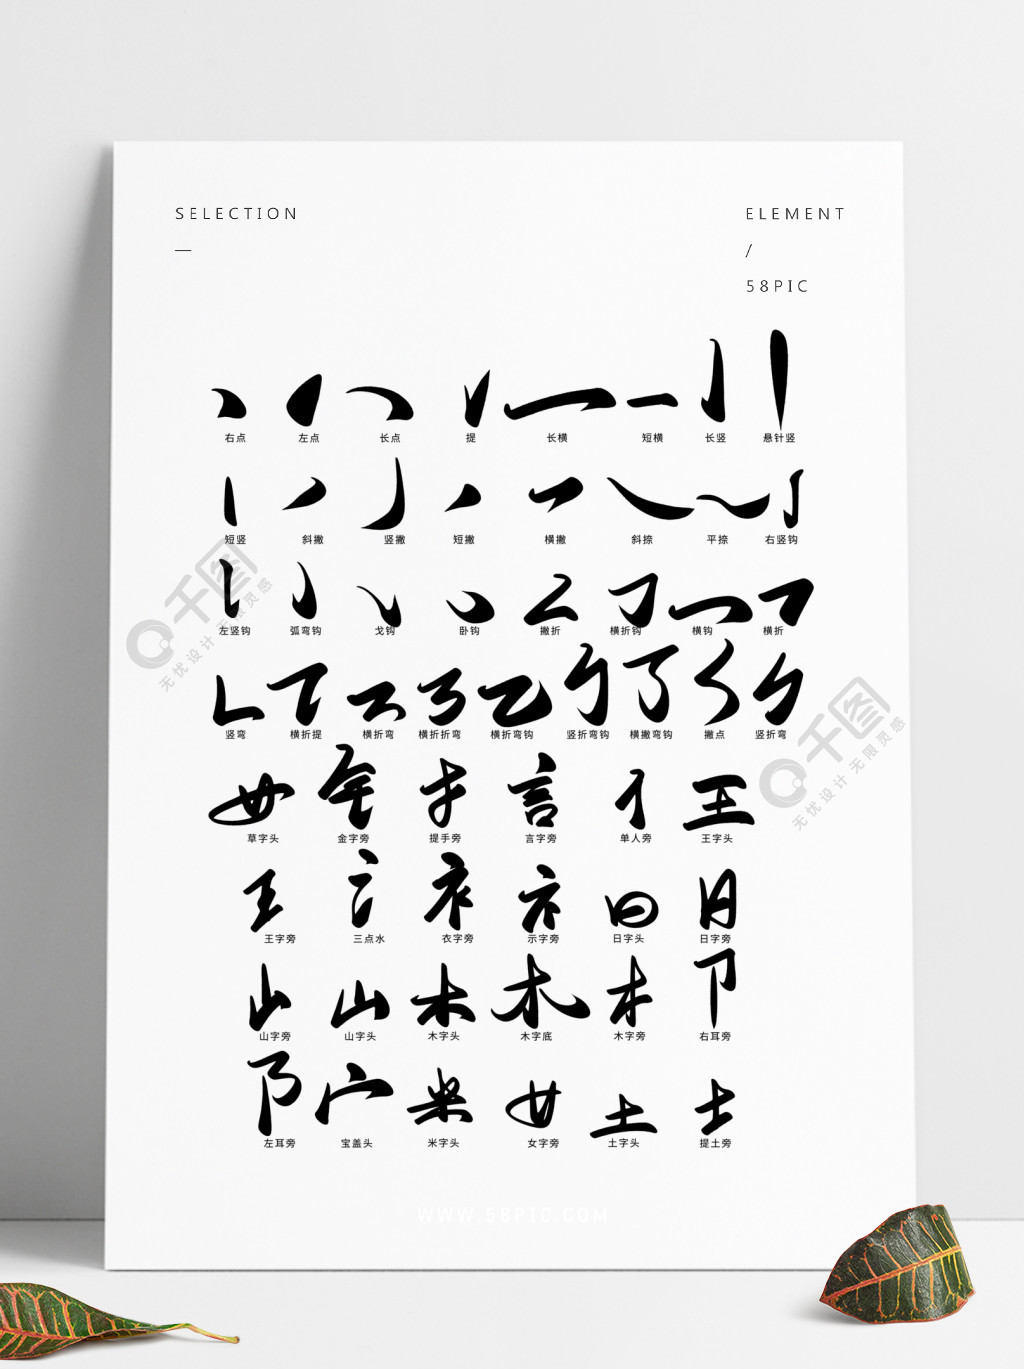 SELECTION
—
ELEMENT
/
58PIC
右点 左点 长点 提 长横 短横 长竖 悬针竖
短竖 斜撇 竖撇 短撇 横撇 斜捺 平捺 右竖钩
左竖钩 弧弯钩 戈钩 卧钩 撇折 横折钩 横钩 横折
竖弯 横折提 横折弯 横折折弯 横折弯钩 竖折弯钩 横撇弯钩 撇点 竖折弯
草字头 金字旁 提手旁 言字旁 单人旁 王字头
王字旁 三点水 衣字旁 示字旁 日字头 日字旁
山字旁 山字头 木字头 木字底 木字旁 右耳旁
左耳旁 宝盖头 米字头 女字旁 土字头 提土旁
WWW.58PIC.COM
千图
无忧设计 无限灵感
千图
无忧设计 无限灵感